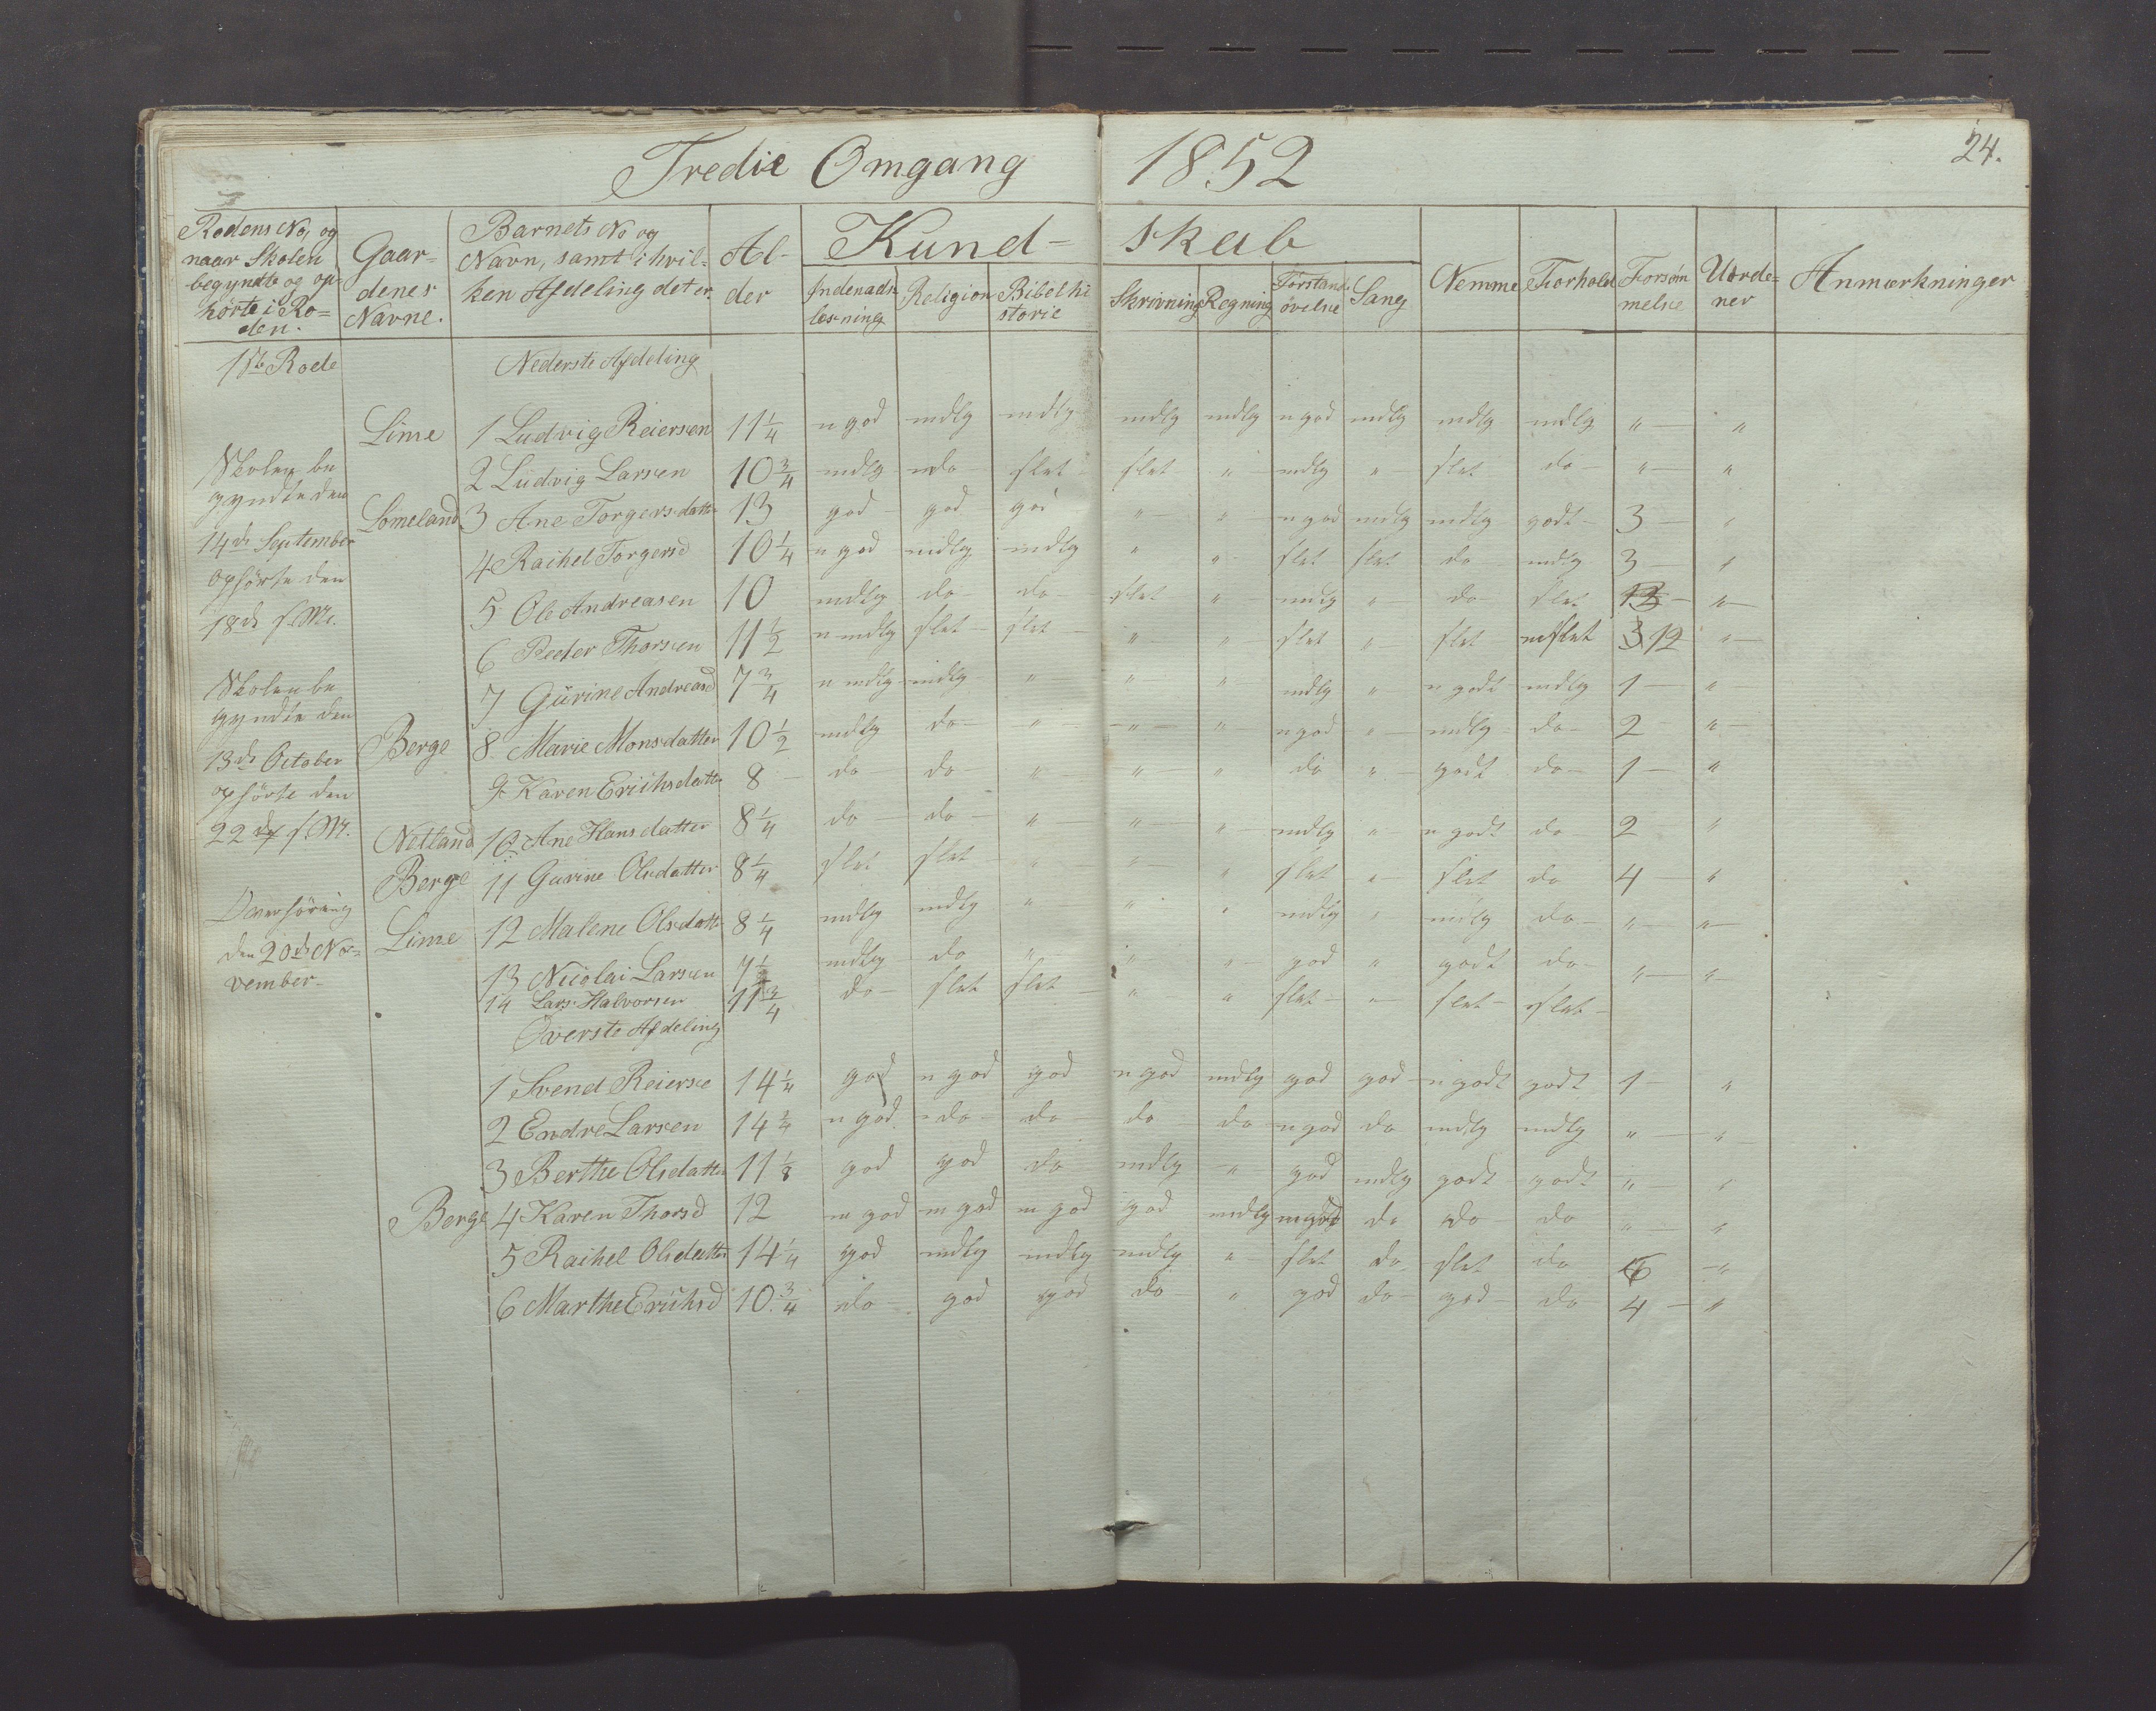 Tredie Omgang 1852
24.
Rodens No, og naar Skolen begyndte og ophörte i Roden. Gaardenes Navne. Barnets No og Navn, samt i hvilken Afdeling det er. Alder Kundskab Indenadslæsning Religion Bibelhistorie Skrivning Regning Forstandsövelse Sang Nemme Forhold Forsömmelse Uordener Anmærkninger
1ste Rode Nederste Afdeling
Lime 1 Ludvig Reiersen 11 1/4 n god mdlg mdlg mdlg mdlg n god mdlg mdlg mdlg " "
2 Ludvig Larsen 10 3/4 mdlg do slet slet " mdlg " slet do " "
Lomeland 3 Ane Torgersdatter 13 god god god " " n god mdlg mdlg godt 3 "
4 Rachel Torgersd 10 1/4 n god mdlg mdlg " " slet slet do mdlg 3 "
5 Ole Andreasen 10 mdlg do do slet " mdlg " do slet "
6 Peder Thorsen 11 1/2 n mdlg slet slet " " slet " slet mslet 3 12 "
7 Gurine Andreasd 7 3/4 n mdlg mdlg " " " mdlg " n godt mdlg 1 "
Berge 8 Marie Monsdatter 10 1/2 mdlg do " " " n god " mdlg do 2 "
9 Karen Erichsdatter 8 do do " " " do " godt do 1 "
Netland 10 Ane Hansdatter 8 1/4 do do " " " mdlg " n godt do 2 "
Berge 11 Gurine Olsdatter 8 1/4 slet slet " " " slet " slet do 4 "
Lime 12 Malene Olsdatt 8 1/4 mdlg mdlg " " " mdlg " mdlg do " "
13 Nicolai Larsen 7 mdlg do " " " god " godt do " "
14 Lars Halvorsen 11 3/4 do slet slet " " slet " slet slet
Skolen be
gyndte den
14de September
ophörte den
18de s. M.
Skolen be
gyndte den
13de October
ophörte den
22de s. M.
Overhöring
den 20de No=
vember
Överste Afdeling
1 Svend Reierse 14 1/4 god n god god n god mdlg god god n godt godt 1 "
2 Endre Larsen 14 3/4 n god do do do do n god do mdlg mdlg " "
3 Berthe Olsdatter 11 1/8 god god do mdlg " god mdlg godt godt " "
Berge 4 Karen Thorsd 12 m god m god m god god mdlg mgod do do do " "
5 Rachel Olsdatter 14 1/4 god mdlg mdlg mdlg " slet do slet do 6 "
6 Marthe Erichsd 10 3/4 do god god do " god do god do 4 "